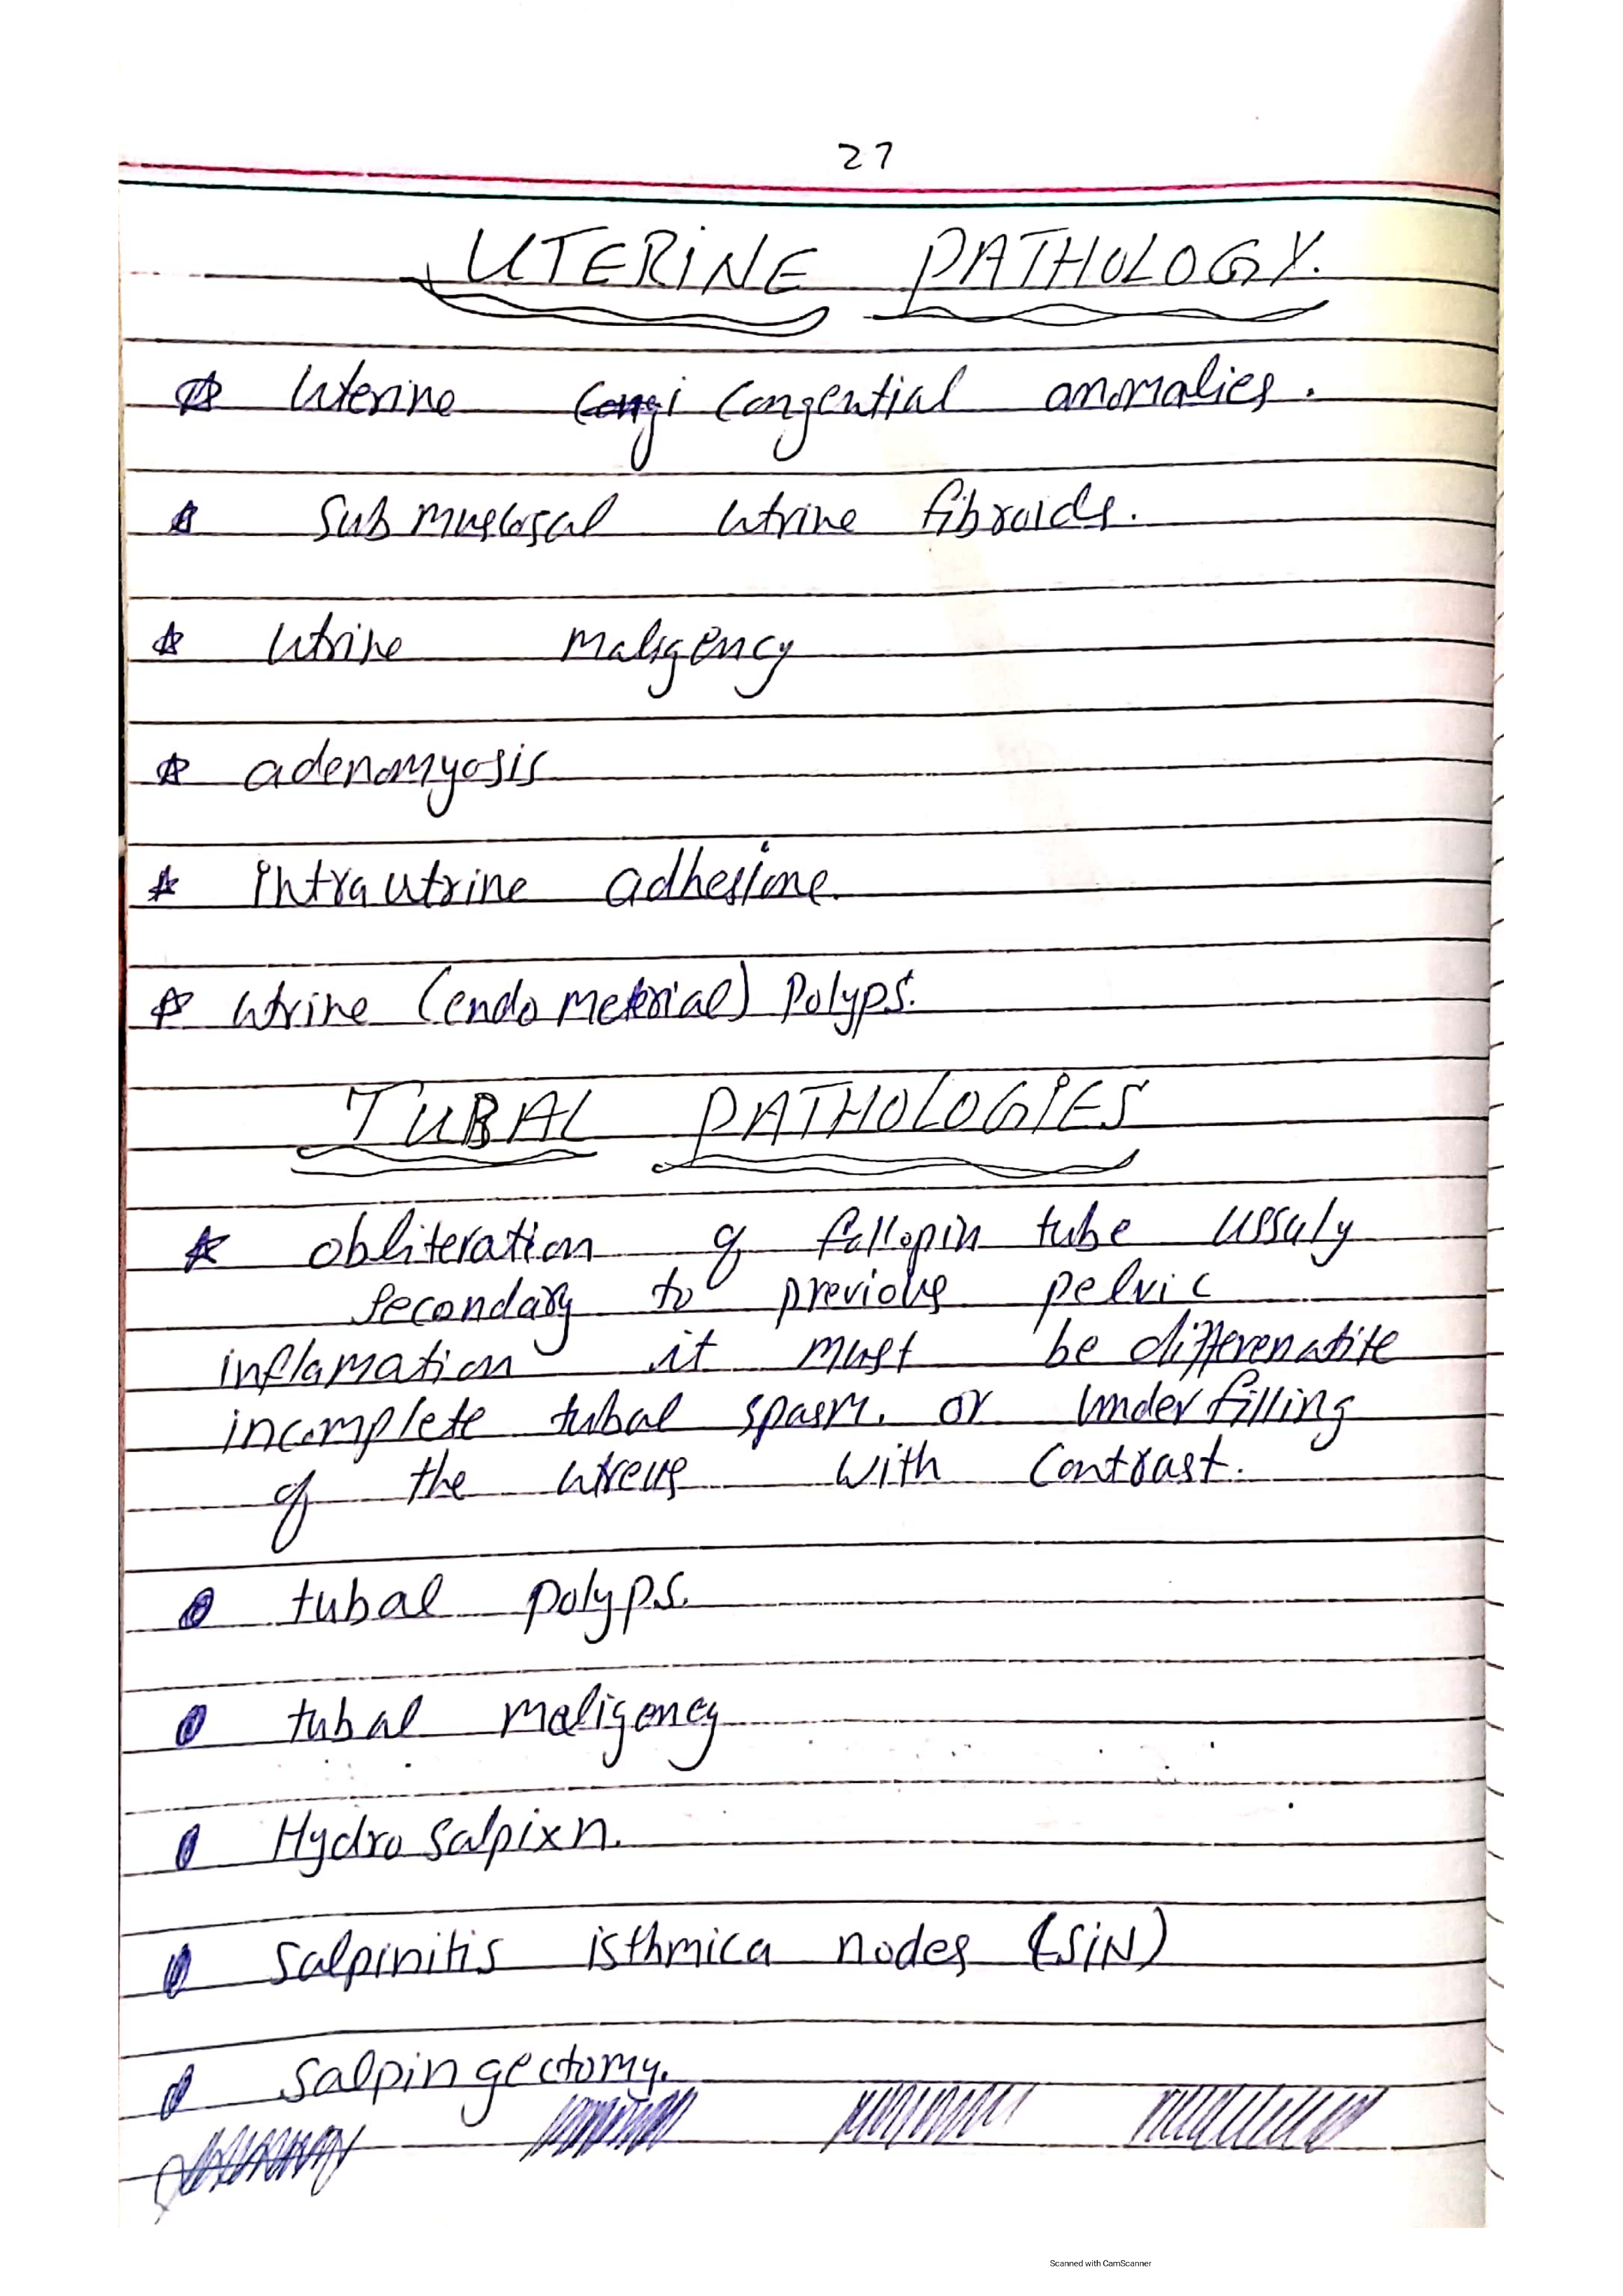 27
UTERINE PATHOLOGY.
Uterine Congential anomalies.
Sub muscosal utrine fibroids.
Utrine maligency
adenomyosis
intra utrine adhesions.
utrine (endo meterial) polyps.
TUBAL PATHOLOGIES
obliteration of fallopin tube ussuly
secondary to previous pelvic
inflamation it must be differenatite
incomplete tubal spasm. or under filling
of the utreus with contrast.
tubal polyps.
tubal maligency
Hydro salpixn.
Salpinitis isthmica nodes (SiN)
Salpingectomy.
Scanned with CamScanner